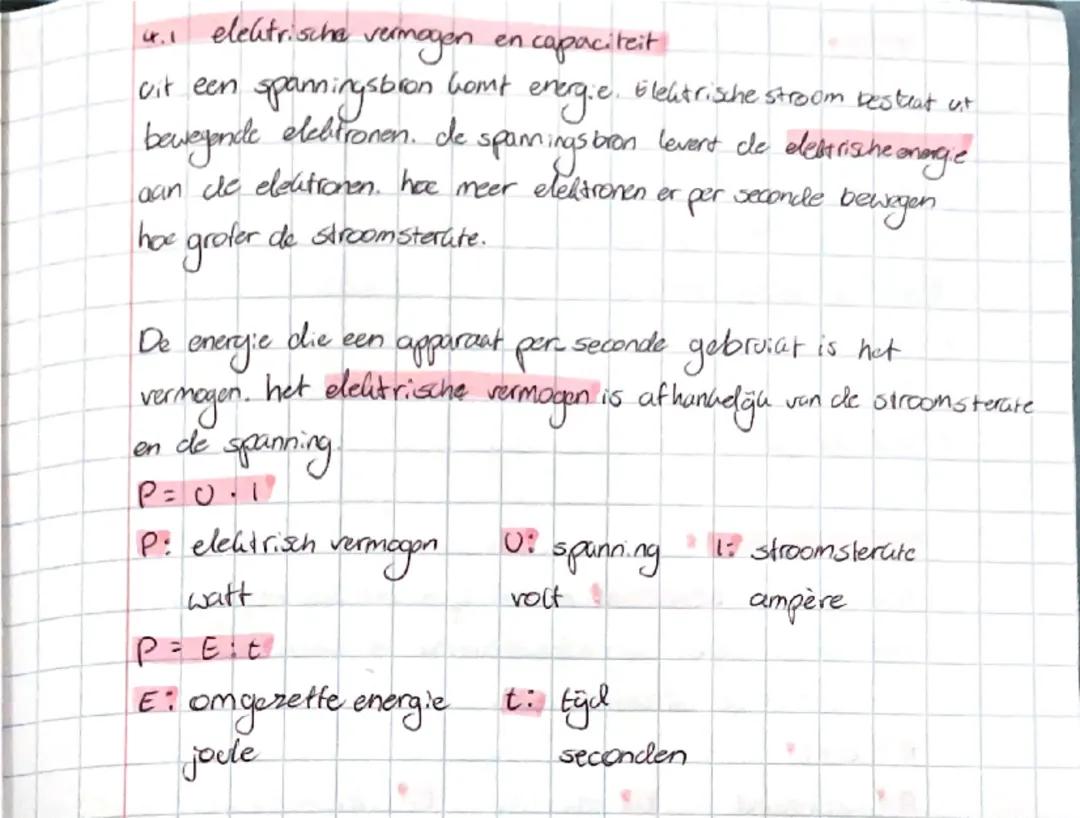 4.1 elektrische vermogen en capaciteit
uit een spanningsbron komt energie. Elektrische stroom bestaat uit
bewegende elektronen. de spanningsbron levert de elektrische energie
aan de elektronen. hoe meer elektronen er per seconde bewegen
hoe groter de stroomsterkte.
De energie die een apparaat per seconde gebruikt is het
vermogen. het elektrische vermogen is afhankelijk van de stroomsterkte
en de spanning.
P = U · I
P: elektrisch vermogen U: spanning I: stroomsterkte
watt volt ampère
P = E : t
E: omgezette energie t: tijd
joule seconden